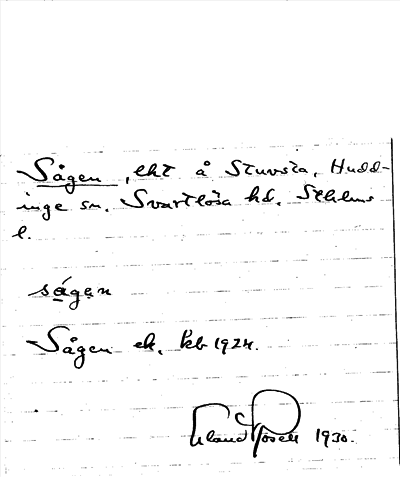 Sågen, lht å Stuvsta, Hudd-
inge sn. Svartlösa hd. Sthlms
l.
ságen
Sågen ek. kb 1924.
Erland Rosell 1930.